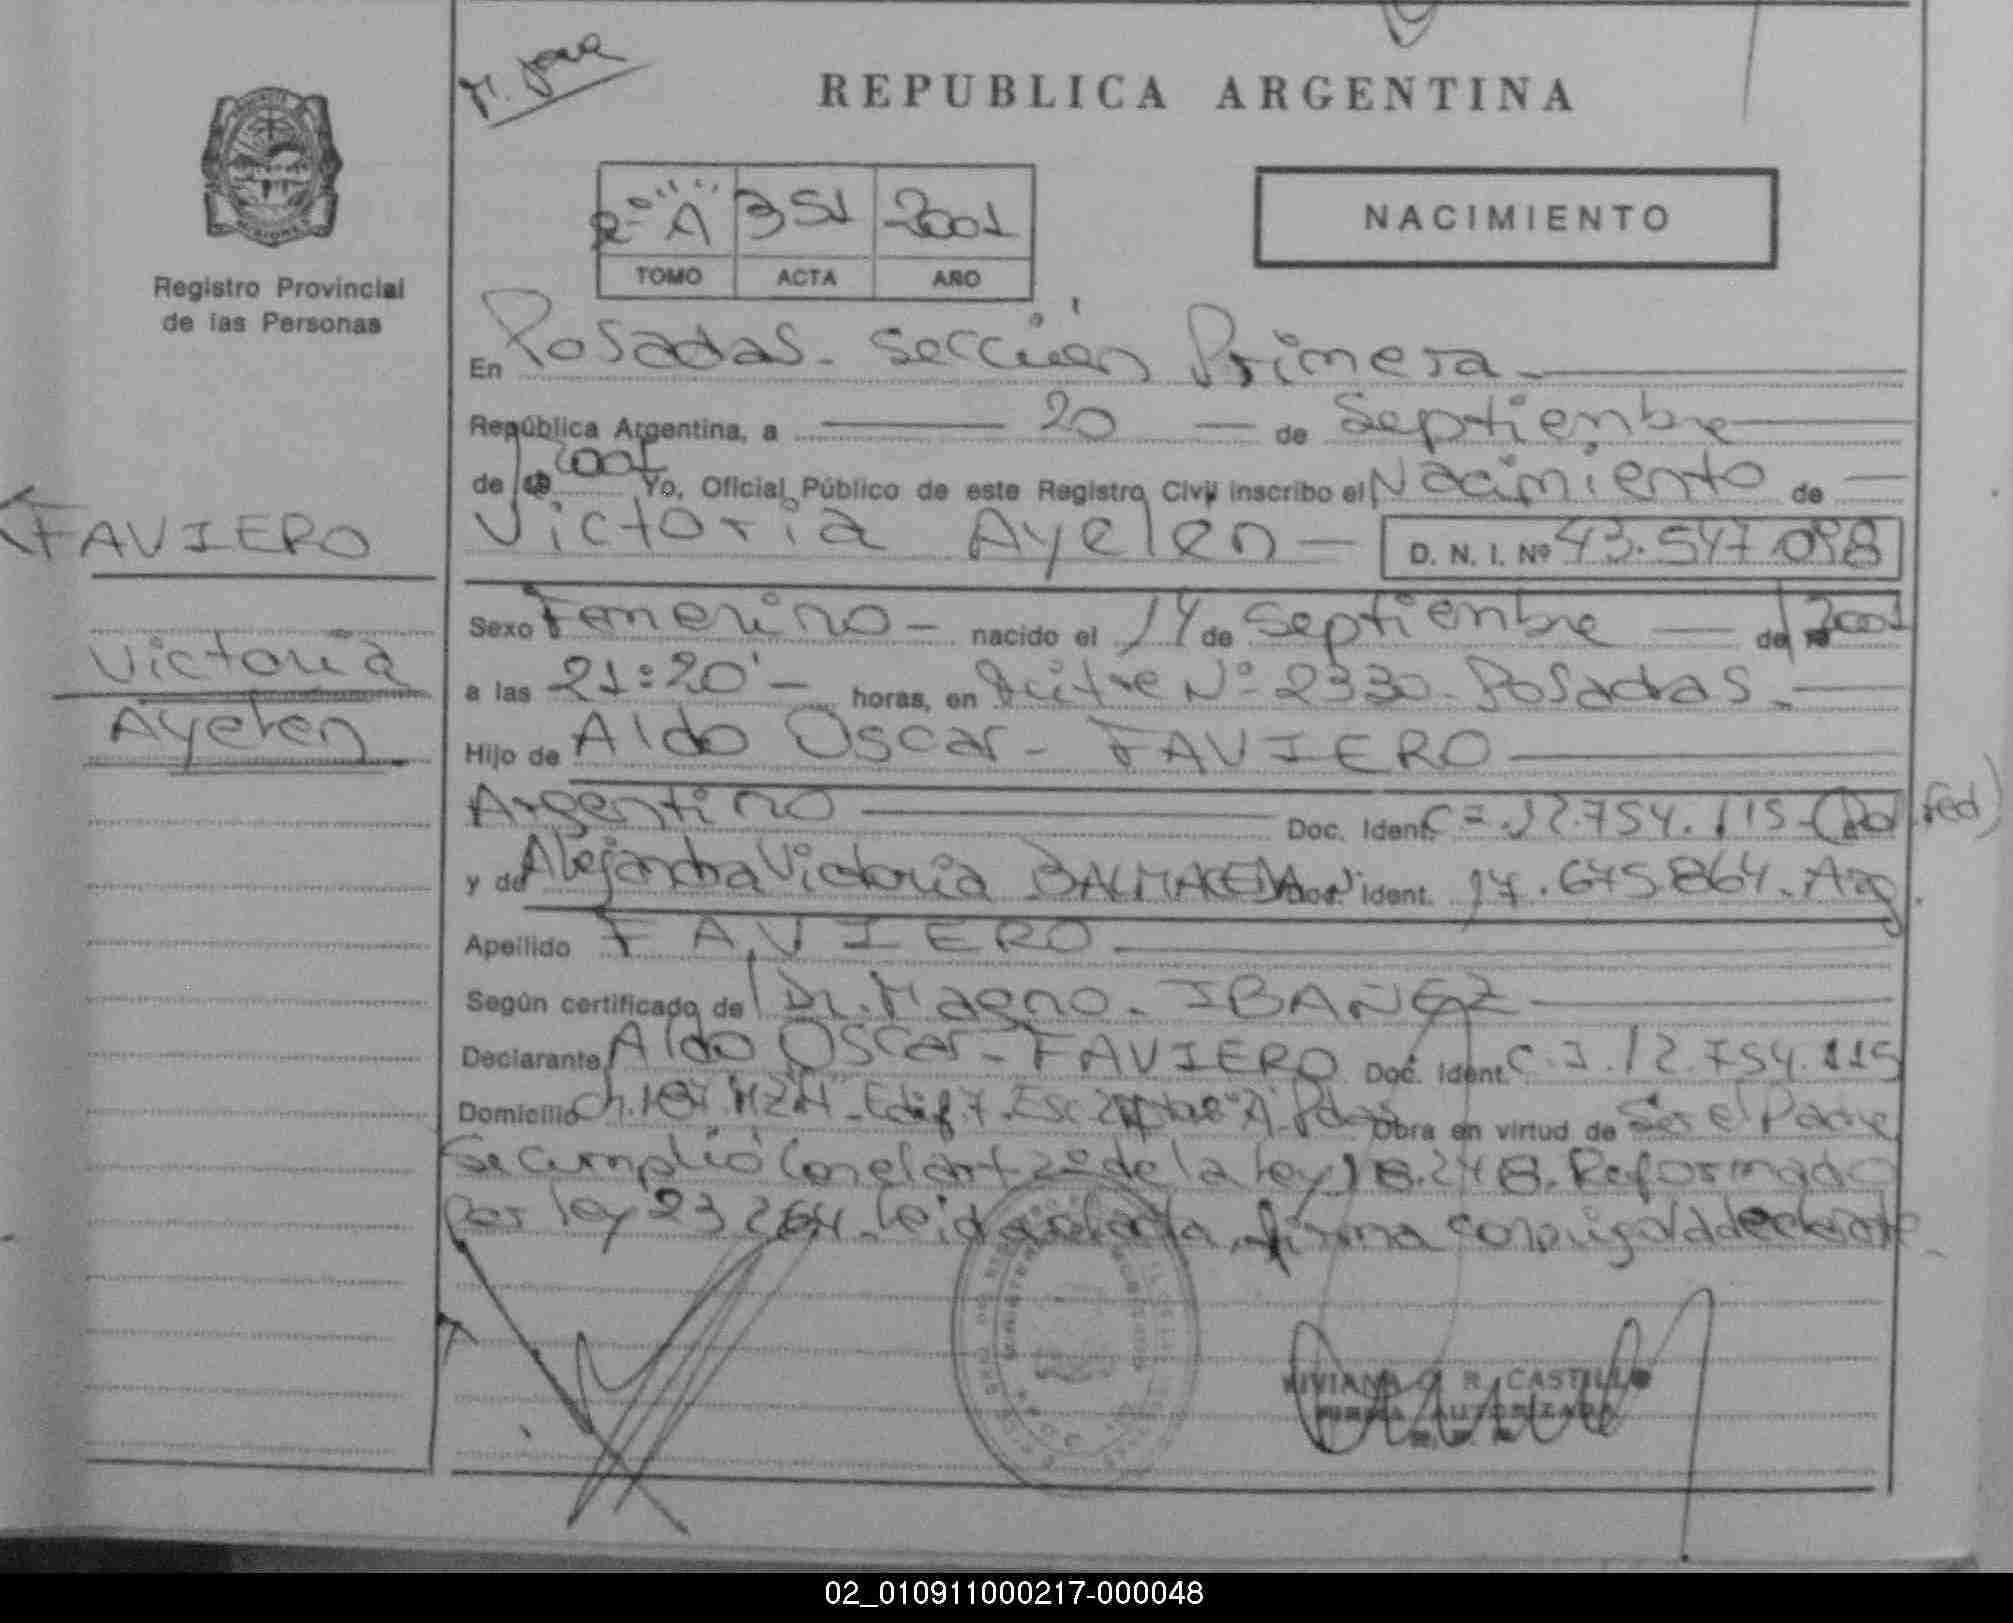 REPUBLICA ARGENTINA
2º "A" 351 2001
TOMO ACTA AÑO
NACIMIENTO
Registro Provincial
de las Personas
En Posadas - Sección Primera
República Argentina, a 20 de Septiembre
de 2001 Yo, Oficial Público de este Registro Civil inscribo el Nacimiento de
FAVIERO
Victoria Ayelén D. N. I. Nº 43.547.098
Sexo Femenino - nacido el 14 de Septiembre de 2001
Victoria
Ayelen
a las 21:20' - horas, en Nº 2330 - Posadas -
Hijo de Aldo Oscar - FAVIERO
Argentino Doc. Ident. 12.754.115 - (Pol. Fed)
y de Alejandra Victoria BALMACEDA Doc. Ident. 17.675.864 - Arg.
Apellido FAVIERO
Según certificado de Dr. Magno - IBAÑEZ
Declarante Aldo Oscar - FAVIERO Doc. Ident. C.I. 12.754.115
Domicilio Ch. 187 - Edif 7 - Esc 2 "A" - Obra en virtud de Ser el Padre
Se cumplió con el art 2º de la ley 18.248. Reformado
Por ley 23264 - leida el acta, firma conmigo el declarante
VIVIANA R. CASTILLO
FIRMA AUTORIZADA
02_010911000217-000048